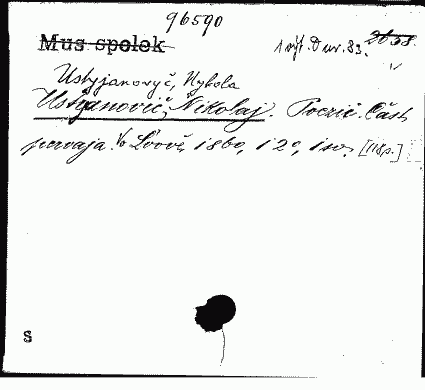 96590
Mus spolek
1 výt. Duv. 83. 2638
Ustyjanovyč, Nykola
Ustyanovič, Nikolaj. Poezie. Část
pervaja. Vo Lvově, 1860, 12°, 1 sv. [118p.]
S